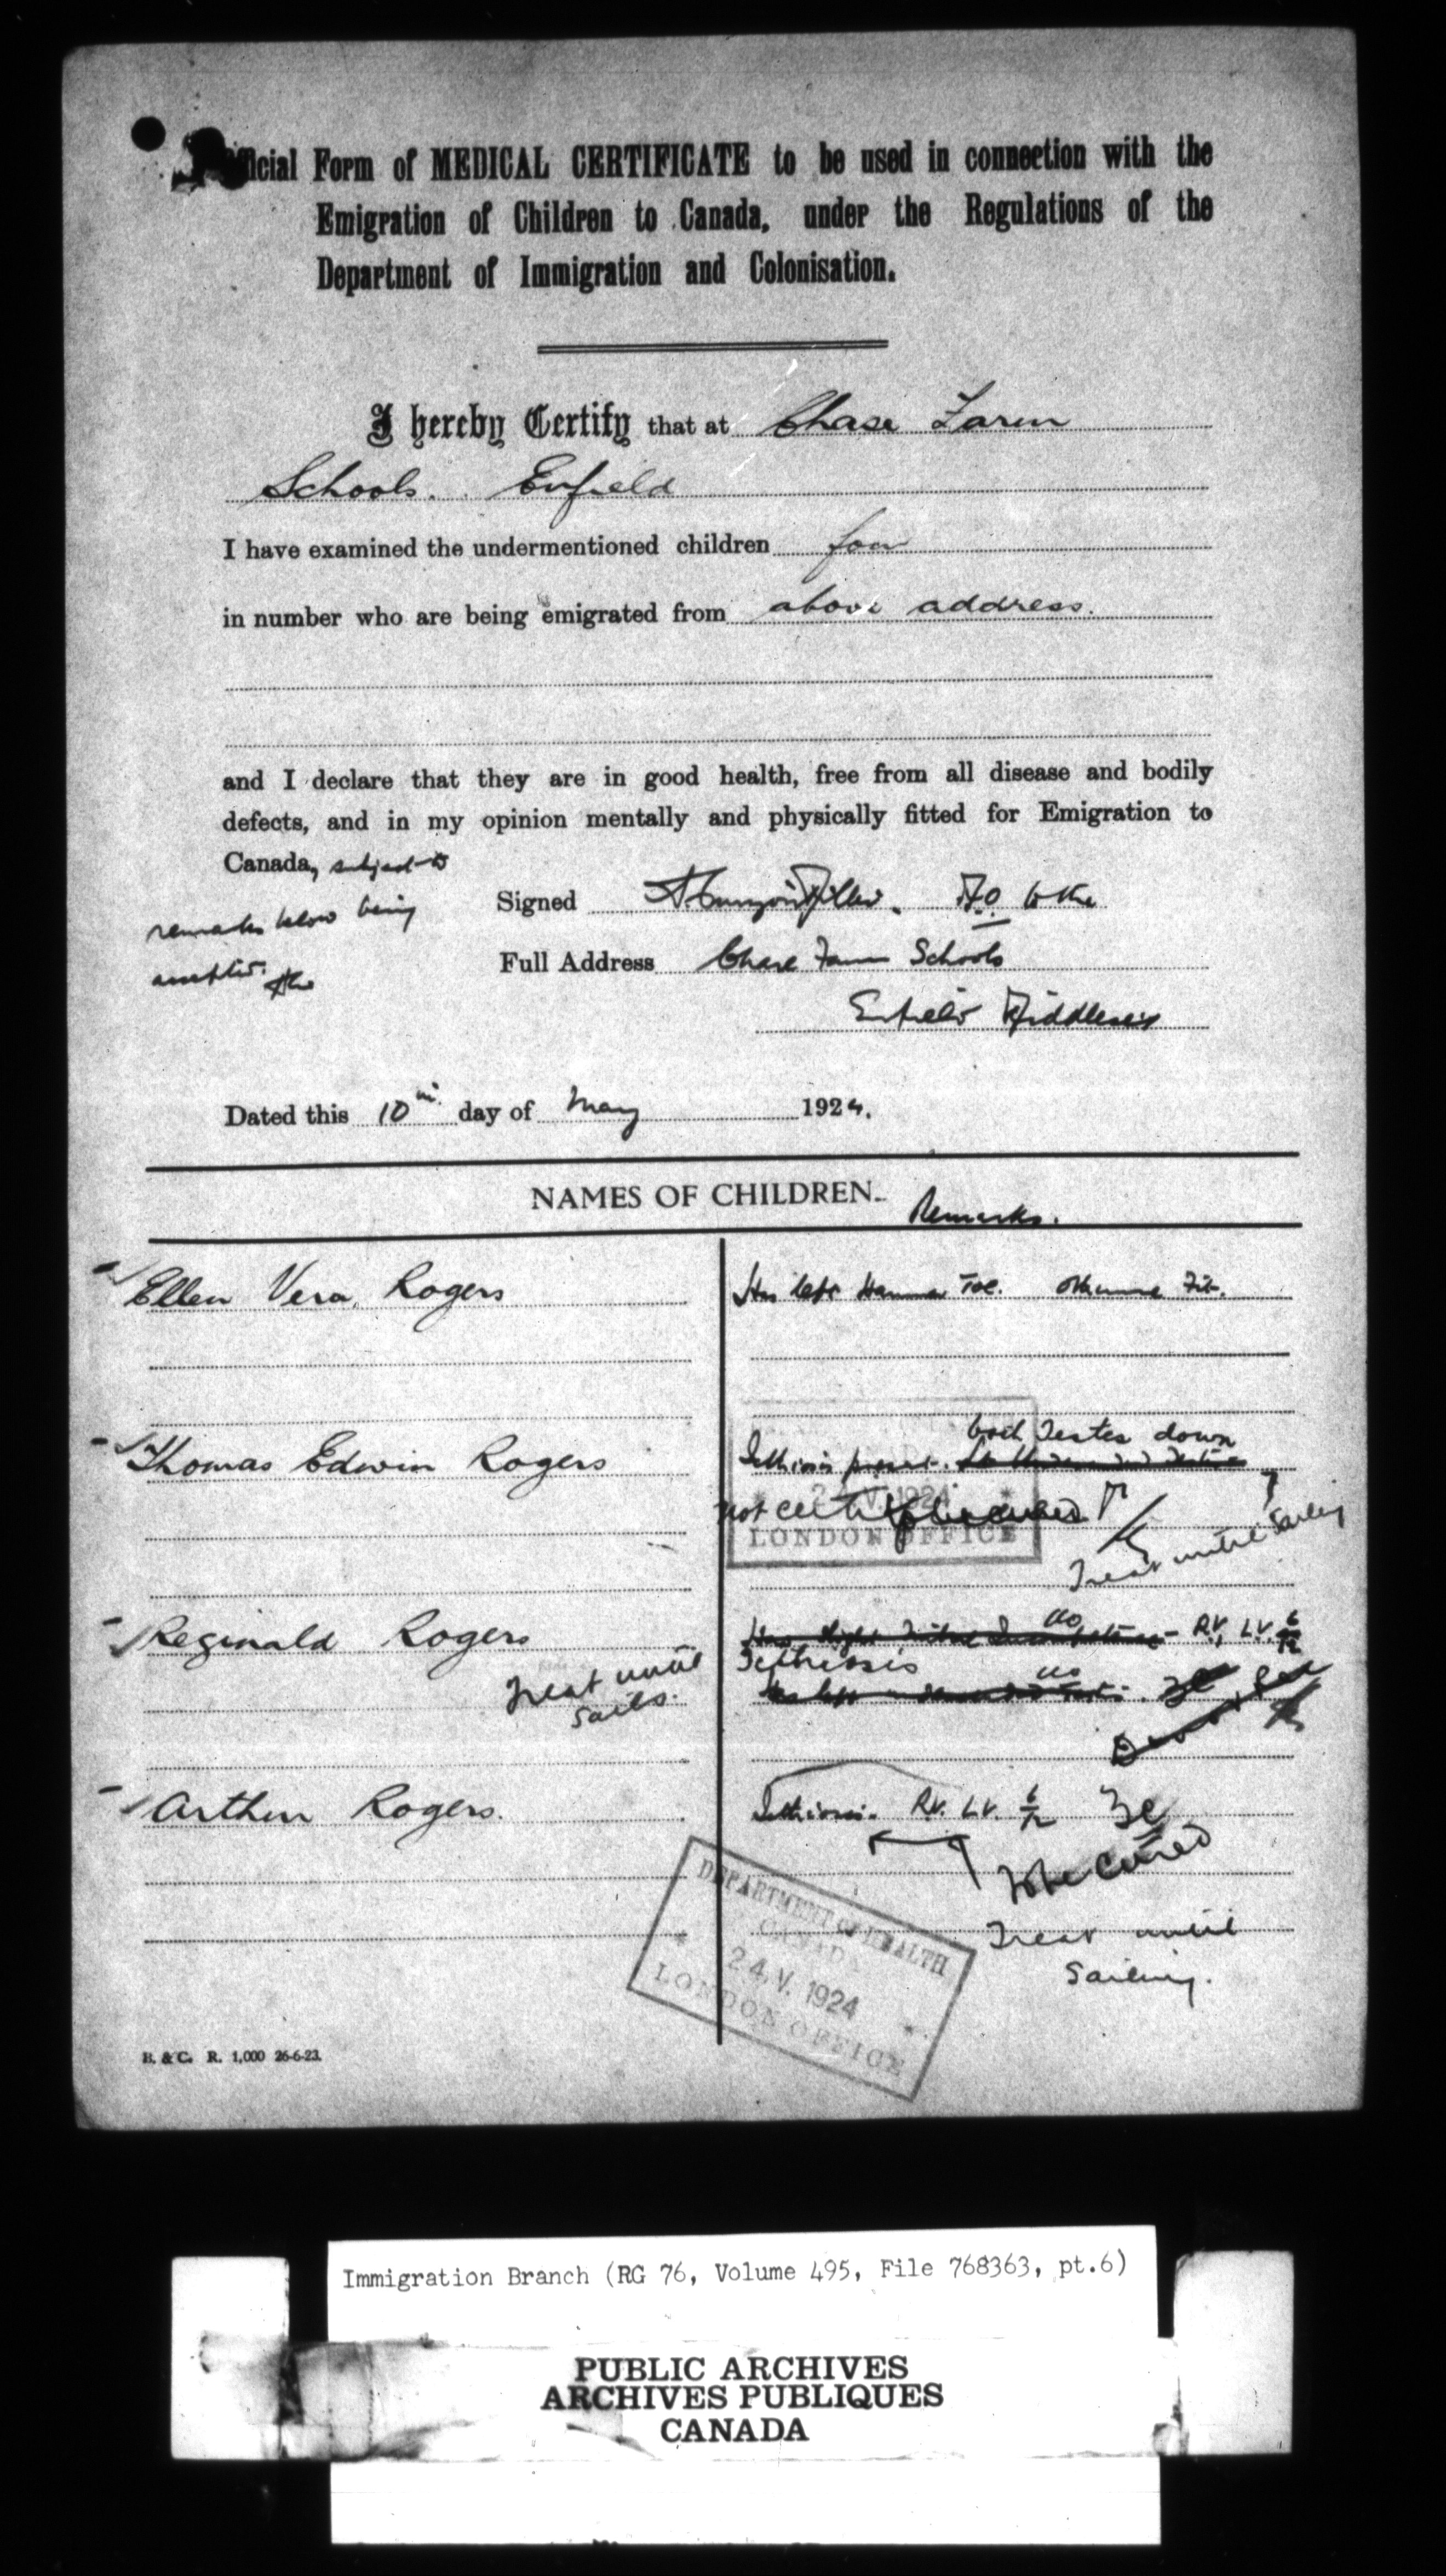 Official Form of MEDICAL CERTIFICATE to be used in connection with the
Emigration of Children to Canada, under the Regulations of the
Department of Immigration and Colonisation.
I hereby Certify that at Chase Farm
Schools. Enfield
I have examined the undermentioned children four
in number who are being emigrated from above address.
and I declare that they are in good health, free from all disease and bodily
defects, and in my opinion mentally and physically fitted for Emigration to
Canada, subject to
remarks below being
Signed M.O. to the
Full Address Chase Farm Schools
Enfield Middlesex
Dated this 10th day of May 1924.
NAMES OF CHILDREN. Remarks.
Ellen Vera Rogers
Has left Hammer Toe. Otherwise Fit.
both Testes down
Thomas Edwin Rogers
Icthiosis present.
LONDON OFFICE
Treat until Sailing
Reginald Rogers
R.V. L.V. 6/12
Icthiosis
Treat until
Sails.
Arthur Rogers.
Icthiosis. R.V. L.V. 6/12
To be cured
Treat until
Sailing.
DEPARTMENT OF HEALTH
CANADA
24. V. 1924
LONDON OFFICE
B. & C. R. 1,000 26-6-23.
Immigration Branch (RG 76, Volume 495, File 768363, pt.6)
PUBLIC ARCHIVES
ARCHIVES PUBLIQUES
CANADA